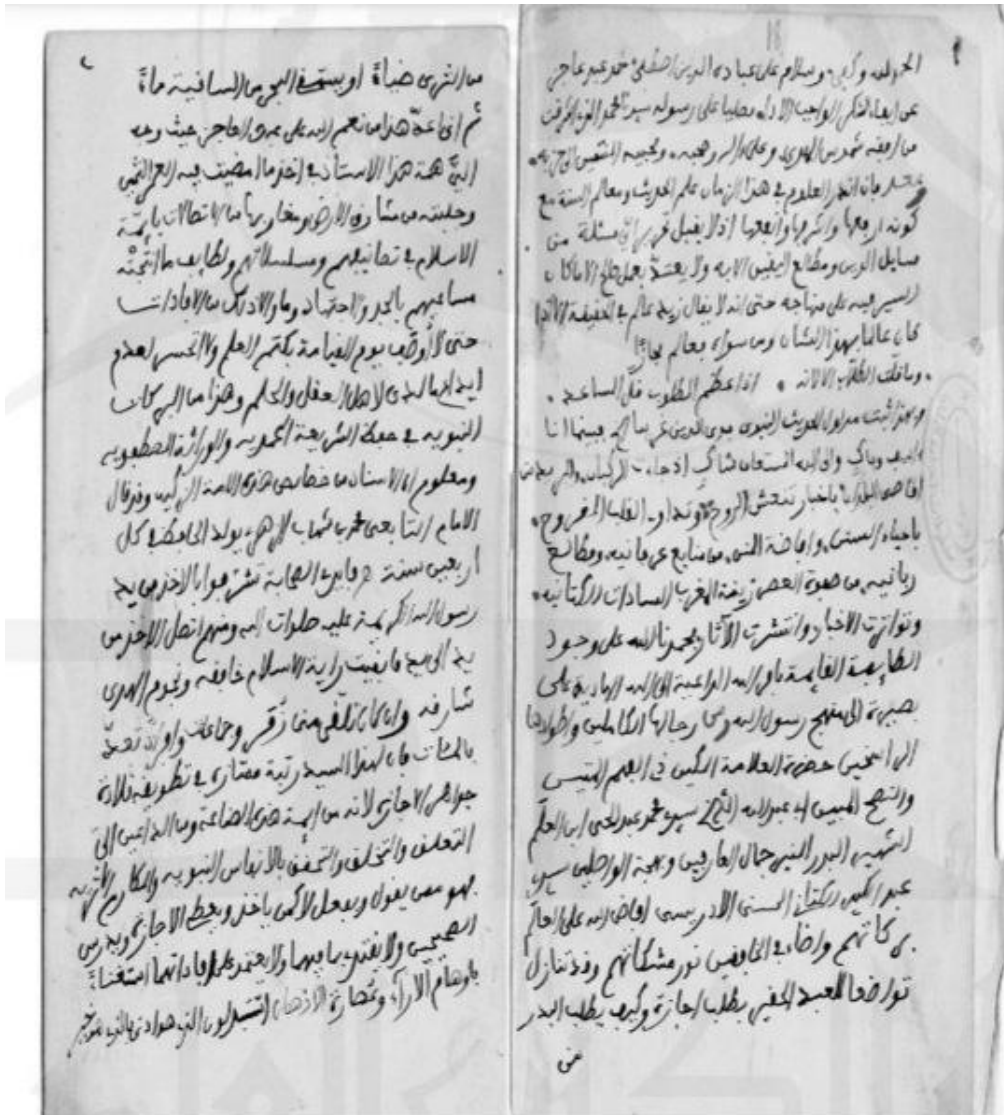 الحمد لله وكفى وسلام على عباده الذين اصطفى حمد عبد عاجز
عن ايفاء الشكر الواجب الاداء مصليا على رسوله سيدنا محمد
من افقه شموس الهدى وعلى اله وصحبه ومحبيه
فان انفع العلوم في هذا الزمان علم الحديث ومعالم السنة مع
كونه ارفعها واشرفها وانفعها اذ لا يقبل تقرير اي مسئلة من
مسايل الدين ومطالع اليقين الا به ولا يعتد بعمل صالح الا ما كان
السير فيه على منهاجه حتى انه لا يقال زيد عالم في الحقيقة الا اذا
كان عالما بهذا الشان ومن سواه فعالم مجازا
وما قلت الطلاب الا لانه اذا عظم المطلوب قل المساعد
مدلول الحديث النبوي الدين غريبا فبينما انا
وباك والى الله المستعان شاك اذ جاءت الركبان
اقاصي البلدان باخبار تنعش الروح وتداوي القلب المقروح
باحياء السنن وافاضة المنن من منابع عرفانيه ومطالع
ربانيه من صفوة العصر زينة المغرب السادات الكتانيه
وتواترت الاخبار وانتشرت الآثار فحمدنا الله على وجود
الطايفة القايمة بامر الله الداعية الى الله الهادية على
بصيرة الى منهج رسول الله ومن رجالها الكاملين واطوادها
الراسخين حضرة العلامة المكين في العلم المتين
والنهج المبين ابو عبد الله الشيخ سيدي محمد عبد الحي ابن العلم
الشهير البدر المنير جمال العارفين وبهجة الواصلين سيدي
عبد الكبير الكتاني الحسني الادريسي افاض الله على العالم
بركاتهم واضاء في الخافقين نور مشكاتهم وقد تنازل
تواضعا للعبد الحقير بطلب اجازة وكيف يطلب البدر
من
٢
من الثرى ضياءً او يستسقي البحر من الساقية ماءً
ثم اني عدّ هذا من نعم الله على عبده العاجز حيث وجه
اليّ همة هذا الاستاذ في اخذ ما امضيت فيه العمر الثمين
وجلبته من مشارق الارض ومغاربها من الاتصالات بايمة
الاسلام في تصانيفهم ومسلسلاتهم ولطايف ما انتجته
مساعيهم بالجد والاجتهاد وما والا ذلك من الافادات
حتى لا أوقف يوم القيامة بكتم العلم ولا اتحسر لعدم
ايداع ما لدي لاهل العقل والحلم وهذا من البركات
النبويه في حفظ الشريعة المحمديه والوراثة المصطفويه
ومعلوم ان الاسناد من خصايص هذه الامة الزكيه وقد قال
الامام التابعي محمد بن شهاب الزهري يولد الحافظ في كل
اربعين سنة الصحابة تشرفوا بالاخذ من يد
رسول الله الكريمة عليه صلوات الله ومنهم اتصل الاخذ من
يد الى يد ما بقيت راية الاسلام خافقه ونجوم الهدى
شارقه وان كان تلقى مني زمر وجماعات وافراد تعد
بالمئات فان لهذا السيد رتبة ممتازة في تطويقه قلادة
جواهر الاجازة لانه من ايمة هذه الصناعة ومن الداعين الى
التعلق والتخلق والتحقق بالانفاس النبويه والمكارم
فهو ممن يقول ويفعل لا كمن ياخذ ويعطي الاجازة ويدرس
الصحيحين ولا يقتدي بما فيهما ولا يعتمد على افاداتهما استغناءً
باوهام الآراء وعصارة الاذهان اتستبدلون الذي هو ادنى بالذي هو خير